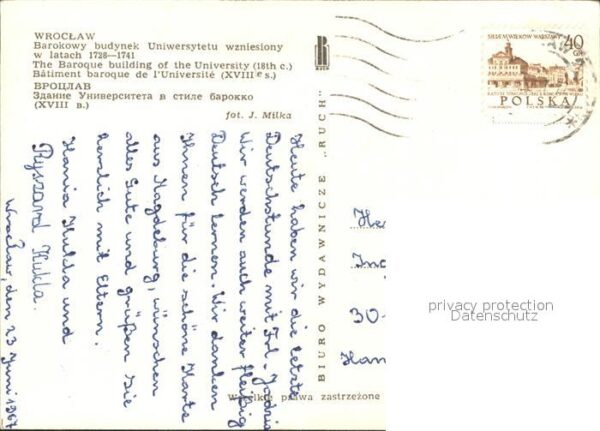 WROCŁAW
Barokowy budynek Uniwersytetu wzniesiony
w latach 1728—1741
The Baroque building of the University (18th c.)
Bâtiment baroque de l'Université (XVIIIe s.)
ВРОЦЛАВ
Здание Университета в стиле барокко
(XVIII в.)
fot. J. Milka
RUCH
SIEDEM WIEKÓW WARSZAWY
40
GR
POLSKA
BIURO WYDAWNICZE „RUCH"
Heute haben wir die letzte
Deutschstunde mit Frl. Jadzia
Wir werden auch weiter fleißig
Deutsch lernen. Wir danken
Ihnen für die schöne Karte
aus Magdeburg, wünschen
alles Gute und grüßen Sie
herzlich mit Eltern.
Hania Kulda und
Ryszard Kukla.
Wrocław, den 23 Juni 1967
He
Ing
30-
Han
privacy protection
Datenschutz
Wszelkie prawa zastrzeżone